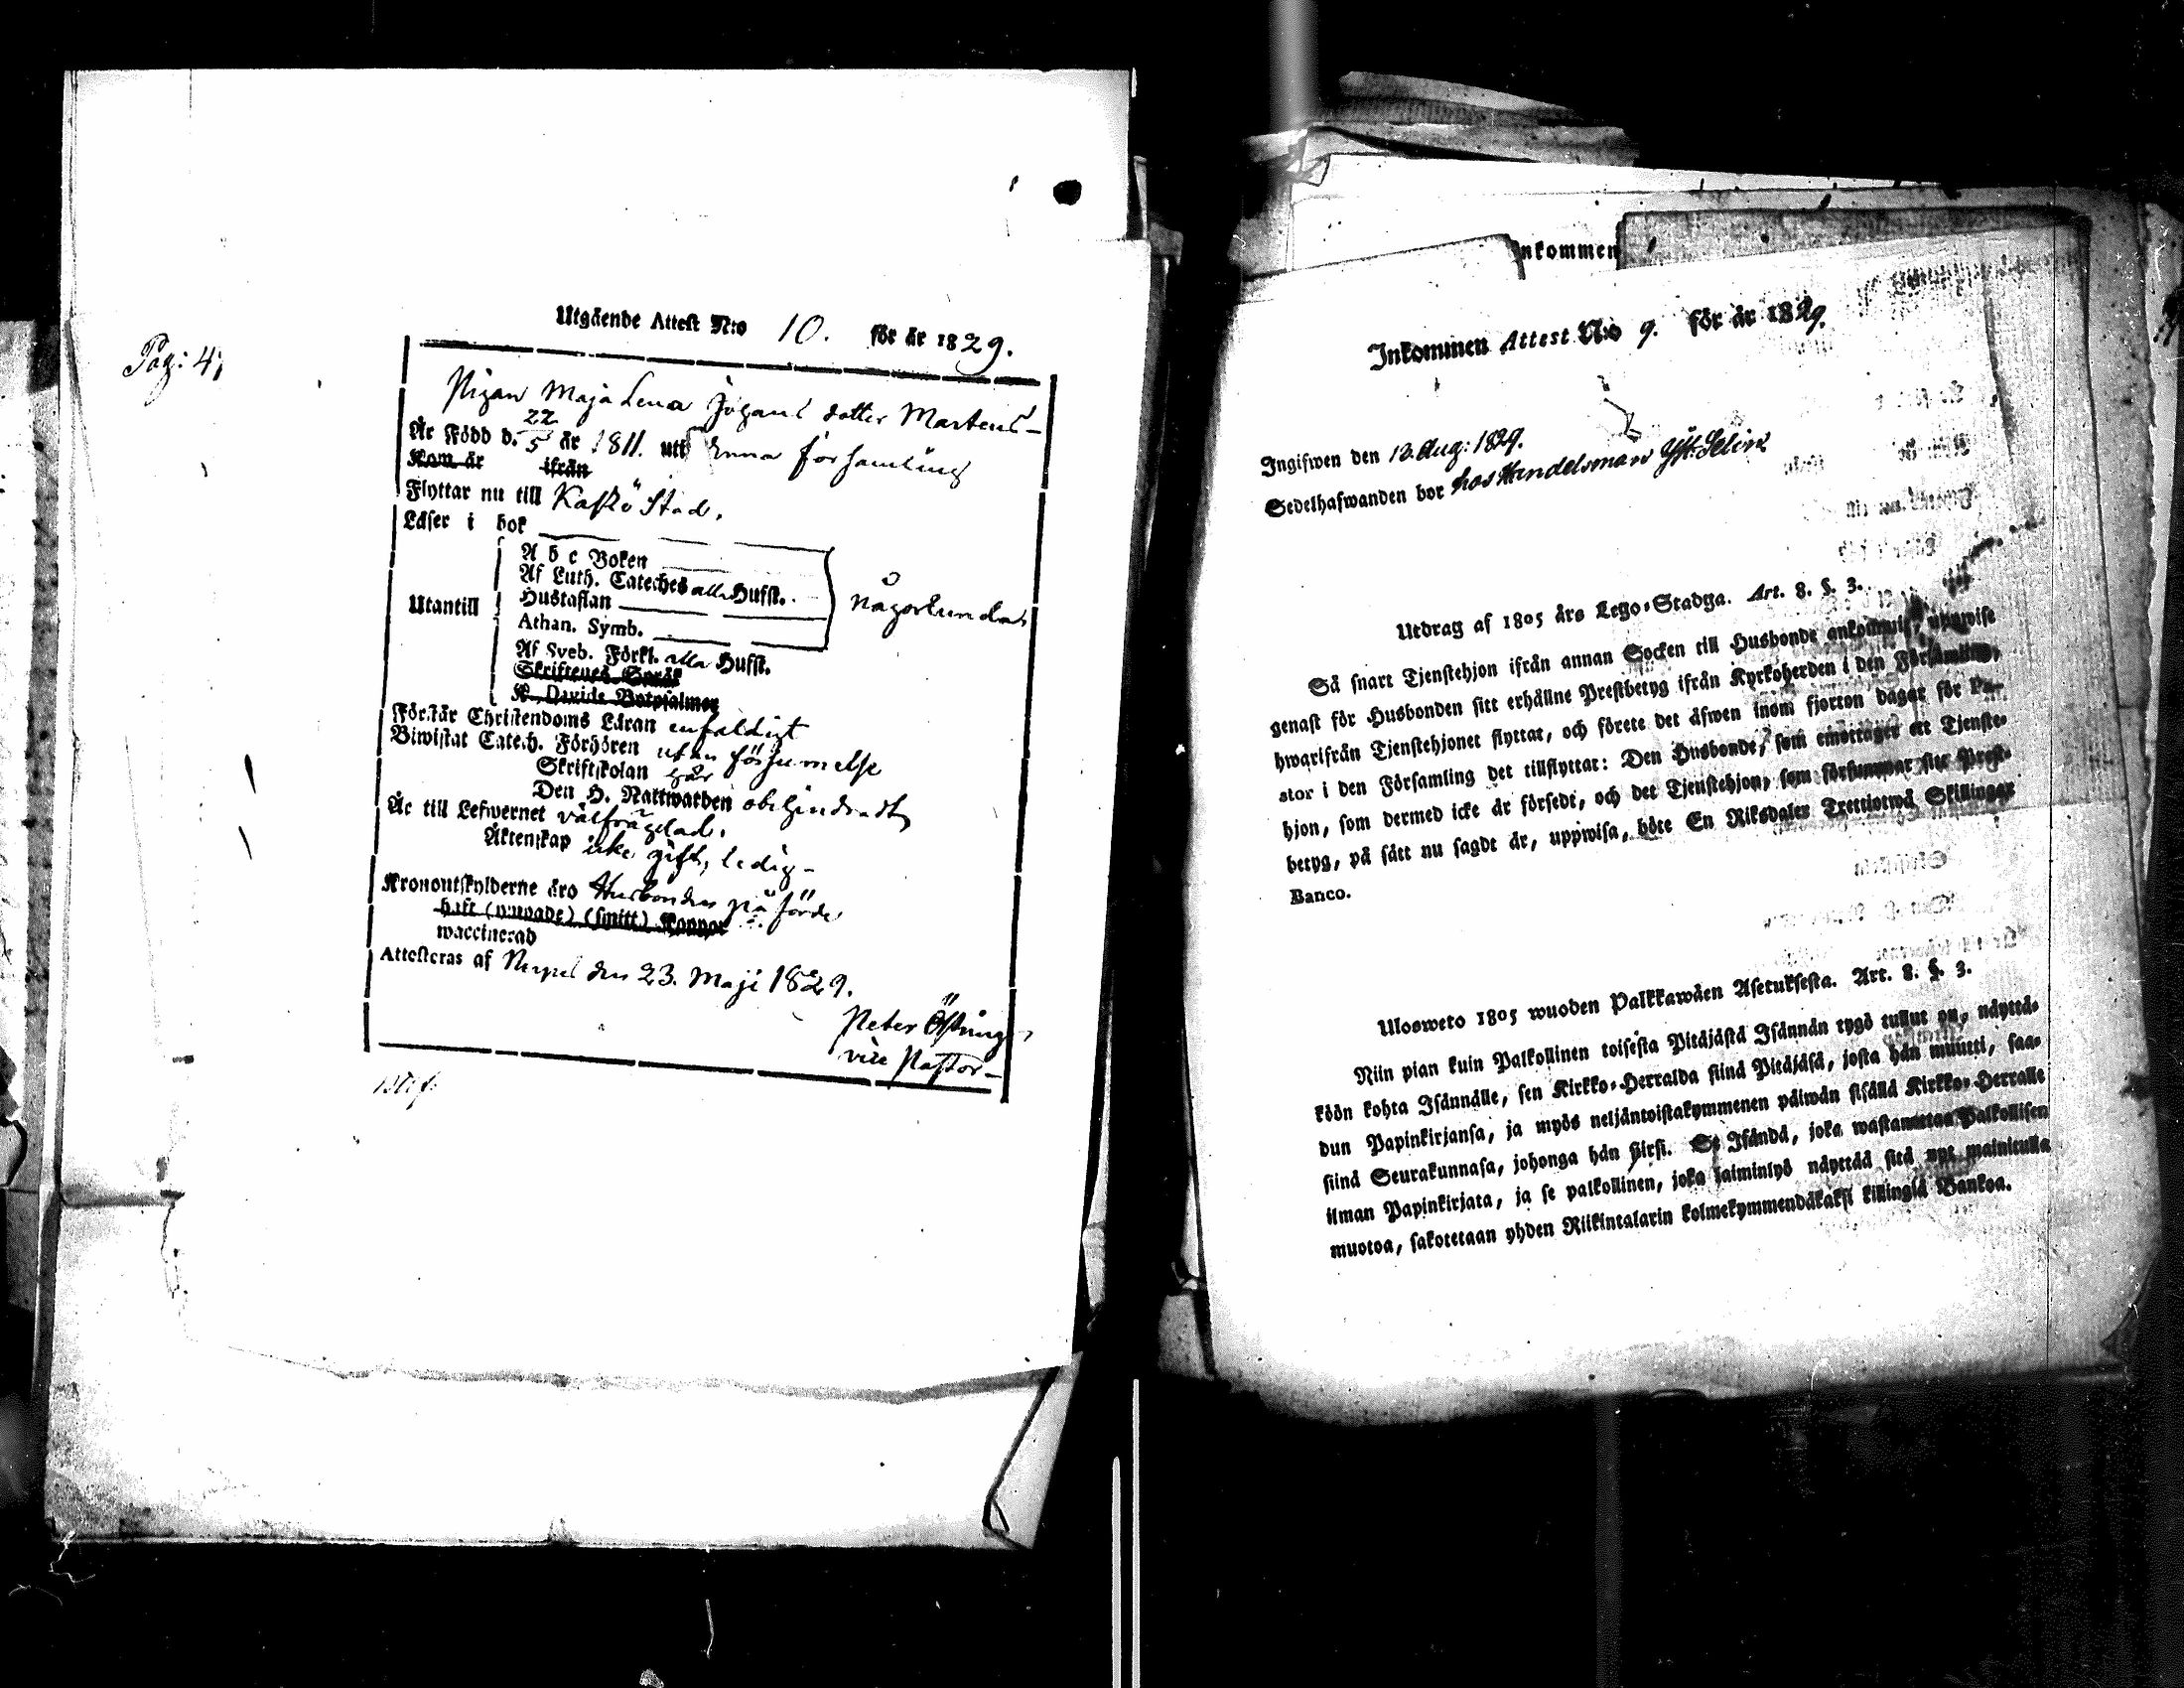 Pag: 4,
Utgående Attest N:o 10. för år 1829.
Pigan Maja Lena Johans dotter Martens-
Är Född d. 22/5 år 1811. uti denna församling
Kom år ifrån
Flyttar nu till Kaskö Stad.
Läser i bok
A b c Boken
Af Luth. Cateches alla Hufst.
Utantill
Hustaflan
någorlunda
Athan. Symb.
Af Sveb. Förkl. alla Hufst.
Skriftenes Språk
K. Davids Botpsalmer
Förstår Christendoms Läran enfaldigt
Biwistat Catech. Förhören utan försummelse
Skriftskolan
Den H. Nattwarden obehindradt
Är till Lefwernet välfrägdad.
Äktenskap icke gift, ledig-
Kronoutskylderne äro Husbonden påförde
haft (ympade) (smitt) Koppor
waccinerad
Attesteras af Nerpes den 23. Maji 1829.
Peter Östring
vice Pastor-
nkommen
Inkommen Attest N:o 9. för år 1829.
Ingifwen den 12. Aug: 1829.
Sedelhafwanden bor hos Handelsman
Utdrag af 1805 års Lego-Stadga. Art. 8. §. 3.
Så snart Tjenstehjon ifrån annan Socken till Husbonde ankommit, uppwise
genast för Husbonden sitt erhållne Prestbetyg ifrån Kyrkoherden i den Församling,
hwarifrån Tjenstehjonet flyttat, och förete det äfwen inom fjorton dagar för Pa-
stor i den Församling det tillflyttat: Den Husbonde, som emottager ett Tjenste-
hjon, som dermed icke är försedt, och det Tjenstehjon, som försummar sitt Prest-
betyg, på sätt nu sagdt är, uppwisa, böte En Riksdaler Trettiotwå Skillingar
Banco.
Ulosweto 1805 wuoden Palkkawäen Asetuksesta. Art. 8. §. 3.
Niin pian kuin Palkollinen toisesta Pitäjästä Isännän tygö tullut on, näyttä-
köön kohta Isännälle, sen Kirkko-Herralda siinä Pitäjäsä, josta hän muutti, saa-
dun Papinkirjansa, ja myös neljäntoistakymmenen päiwän sisällä Kirkko-Herralle
siinä Seurakunnasa, johonga hän siirsi. Se Isändä, joka wastanottaa Palkollisen
ilman Papinkirjata, ja se palkollinen, joka laiminlyö näyttää sitä nyt mainitulla
muotoa, sakotetaan yhden Riikintalarin kolmekymmendäkaksi killingiä Bankoa.